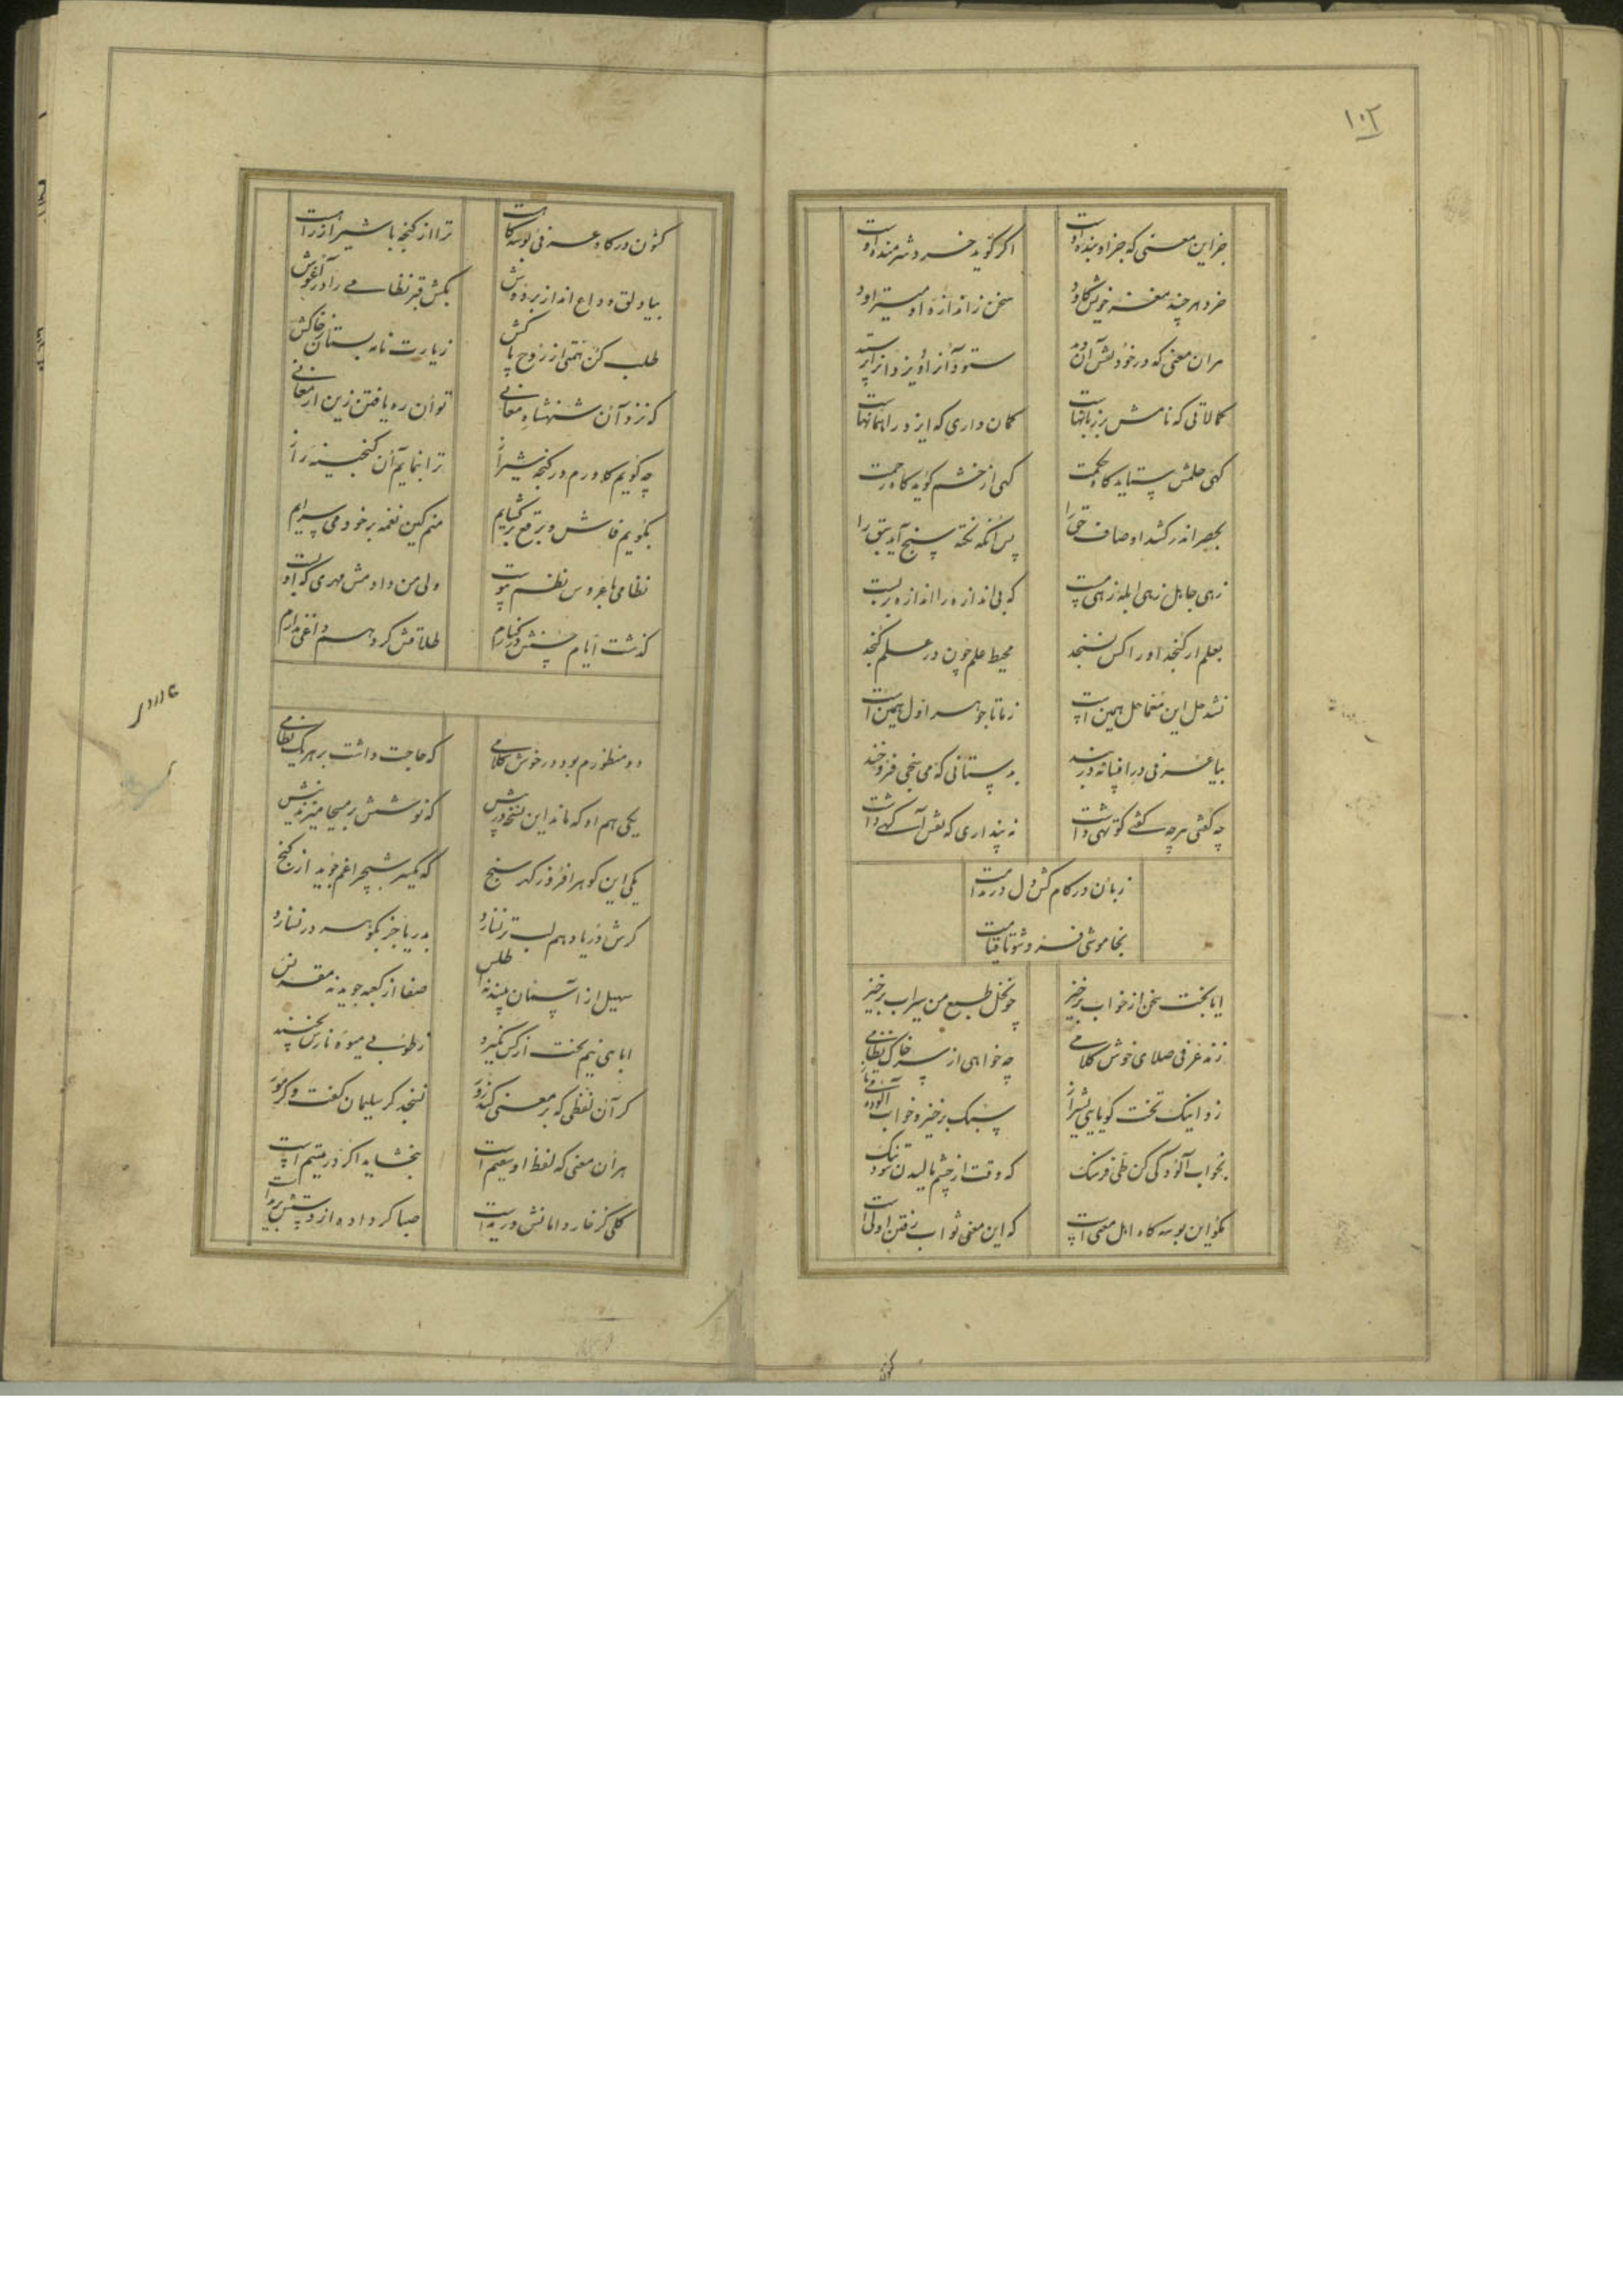 ۱۰۲
جز این معنی که جز او بنده اوست اگر گوید خرد شرمنده اوست
خرد هر چند مغز خویش کاود سخن ز اندازه او میتراود
هر آن معنی که در خود نقش آن دید ستود آنرا و یزدانرا پرستید
کمالاتی که نامش بر زبانهاست کمان داری که ایزد را همانهاست
گهی حلمش ستاید گاه حکمت گهی از خشم گوید گاه رحمت
بحصر اندر کشد اوصاف حق را پس آنگه نکته سنج آید سبق را
زهی جاهل زهی ابله زهی مست که بی اندازه را اندازه بربست
بعلم ار گنجد او را کس نسنجد محیط علم چون در علم گنجد
نشد حل این معما حل همین است ز ما تا جوهر اول همین است
بیا عرفی در افسانه دربند
چه گفتی هرچه گفتی کوتهی داشت نه پنداری که نقش آگهی داشت
زبان در کام کش دل در ندامت
بخاموشی فرو شو تا قیامت
ایا بخت سخن از خواب برخیز چو نخل طبع من سیراب برخیز
زند عرفی صلای خوش کلامی چه خواهی از سر خاک نظامی
زد اینک تخت گویایی بشیراز سبک برخیز و خواب آلوده می تاز
بخواب آلودگی کن طی فرسنگ که وقت از چشم مالیدن شود تنگ
مگو این بوسه گاه اهل معنی است که این معنی ثواب رفتن اولی است
کنون
کنون درگاه عرفی بوسه گاهست ترا از گنجه با شیراز راهست
بیا دلق وداع انداز بر دوش بکش قبر نظامی را در آغوش
طلب کن همتی از روح پاکش زیارت نامه بستان ز خاکش
که نزد آن شهنشاه معانی توان ره یافتن زین ارمغانی
چه گویم کاورم در گنجه شیراز ترا بنمایم آن گنجینه راز
بگویم فاش و برقع برگشایم منم کین نغمه بر خود می سرایم
نظامی با عروس نظم پیوست ولی من دادمش مهری که او بست
گذشت ایام حسنش در کنارم طلاقش کرد و هم داغی ندارم
دو منظورم بود در خوش کلامی که حاجت داشت بر هر یک نظامی
یکی هم او که ماند این نسخه در پیش
یکی این گوهر افروز گهر سنج که یکسر شبچراغم جوید از گنج
گرش دریا دهم لب تر نسازد بدریا جز بگوهر در نسازد
سهیل از آسمان بیند نه اطلس صفا از کعبه جوید نه مقرنس
ز طوبی میوه نارس نچیند
گر آن لفظی که بر معنی کند زور نسنجد گر سلیمان گفت و گر مور
هر آن معنی که لفظ او سقیم است نبخشاید اگر در یتیم است
گلی کز خار دامانش دریده است صبا گر داده از دستش بریده است